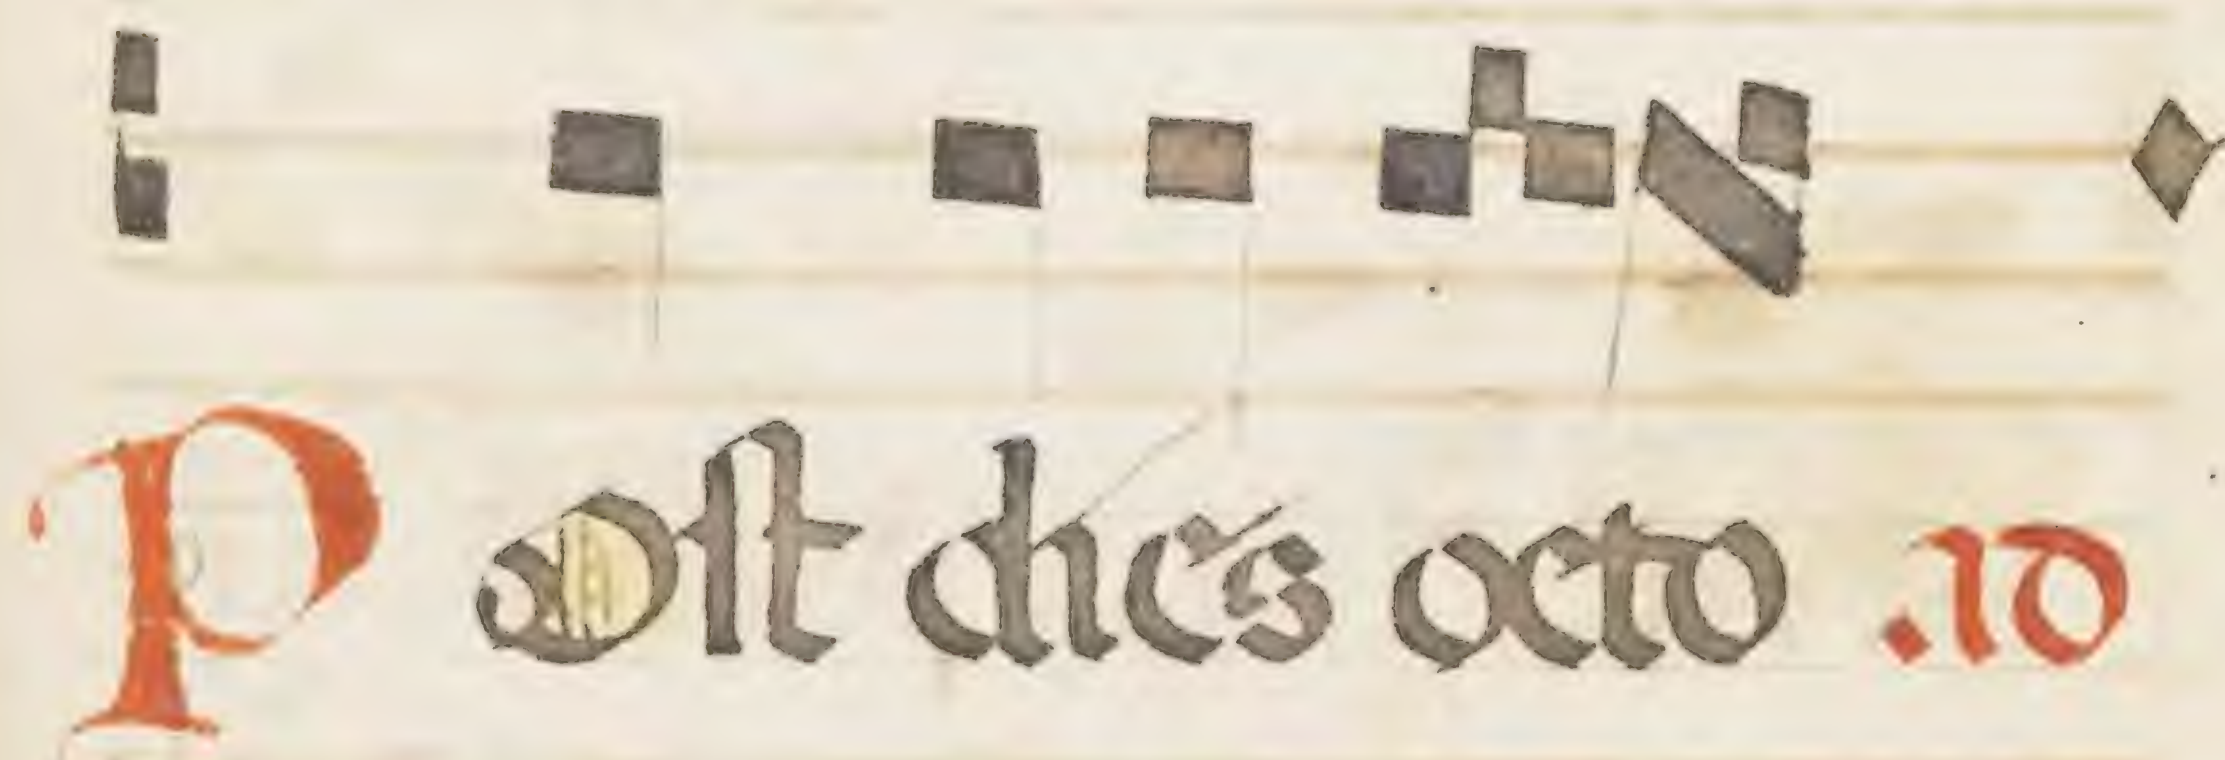 Post dies octo .ıo